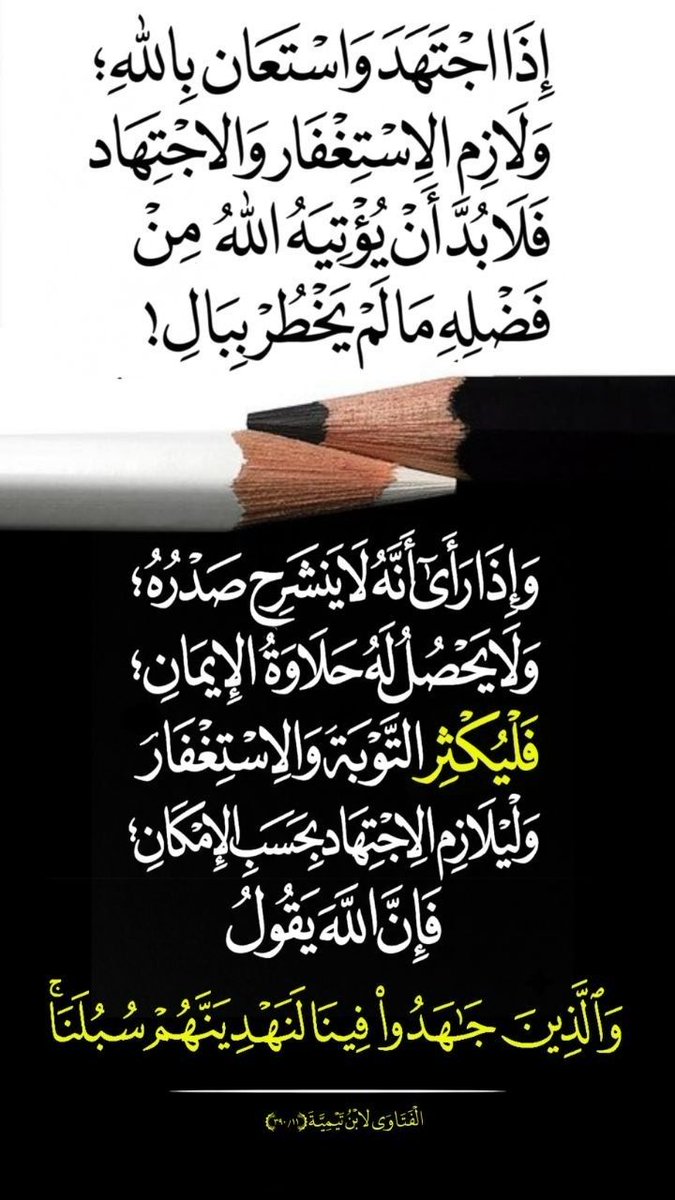 إِذَا اجْتَهَدَ وَاسْتَعَان بِاللهِ؛
وَلَازِم الِاسْتِغْفَار وَالاجْتِهَاد
فَلَا بُدَّ أَنْ يُؤْتِيَهُ اللهُ مِنْ
فَضْلِهِ مَا لَمْ يَخْطُرْ بِبَالِ!
وَإِذَا رَأَىٰٓ أَنَّهُ لَا يَنشَرِح صَدْرُهُ؛
وَلَا يَحْصُلُ لَهُ حَلَاوَةُ الإِيمَانِ؛
فَلْيُكْثِرِ التَّوْبَةَ وَالِاسْتِغْفَارَ
وَلْيُلَازِم الِاجْتِهَاد بِحَسَبِ الإِمْكَانِ؛
فَإِنَّ اللَّهَ يَقُولُ
وَٱلَّذِينَ جَٰهَدُوا۟ فِينَا لَنَهْدِيَنَّهُمْ سُبُلَنَاۚ
الْفَتَاوَى لِابْنُ تَيْمِيَّةَ ﴿١١/٣٩٠﴾